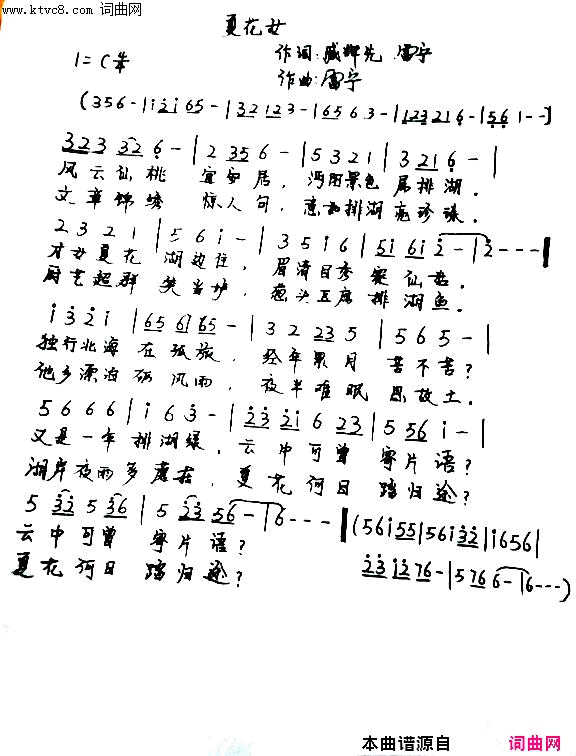 www.ktvc8.com 词曲网
夏花女
1=C 4/4 作词:盛辉先 雷宁
作曲:雷宁
(356-|i2i65-|32123-|1656 3-|123216-|561--)
323 326-|2356-|5321|3216-|
风云仙桃 宜安居, 沔阳景色属排湖.
文章锦绣 惊人句, 排湖 珍珠.
2321|56i-|35i6|5i6i2-|2---‖
才女夏花 湖边住, 眉清目秀 仙
厨艺超群 美当炉, 葱头豆腐 排湖鱼.
i32i|656i65-|32235|565-|
独行北海 在孤旅, 经年累月 苦不苦?
他乡漂泊 风雨, 夜半难眠 思故土.
5666|i63-|232i623|556i-|
又是一年 排湖绿, 云中可曾 寄片语?
湖岸夜雨 多 , 夏花何日 踏归途?
532536|52356-|6---‖(56i55|56i32|i6561|
云中可曾 寄片语?
23i276-|5766-|6---)
夏花何日 踏归途?
本曲谱源自 词曲网